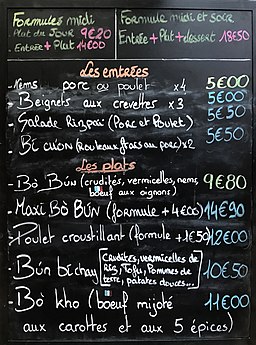 Formules midi
Plat du Jour 9€20
- Entrée + Plat 14€00
Formule midi et soir
Entrée + Plat + dessert 18€50
Les entrées
- Nems porc ou poulet x4 5€00
- Beignets aux crevettes x3 5€00
- Salade (Porc et Poulet) 5€50
- Bì cuốn (rouleaux frais au porc) x2 5€50
Les plats
- Bò Bún (crudités, vermicelles, nems, boeuf aux oignons) 9€80
- Maxi Bò Bún (formule + 4€00) 14€90
- Poulet croustillant (formule + 1€50) 12€00
- Bún bì chay (Crudités, vermicelles de riz, Tofu, Pommes de terre, patates douces... 10€50
- Bò kho (boeuf mijoté 11€00
aux carottes et aux 5 épices)